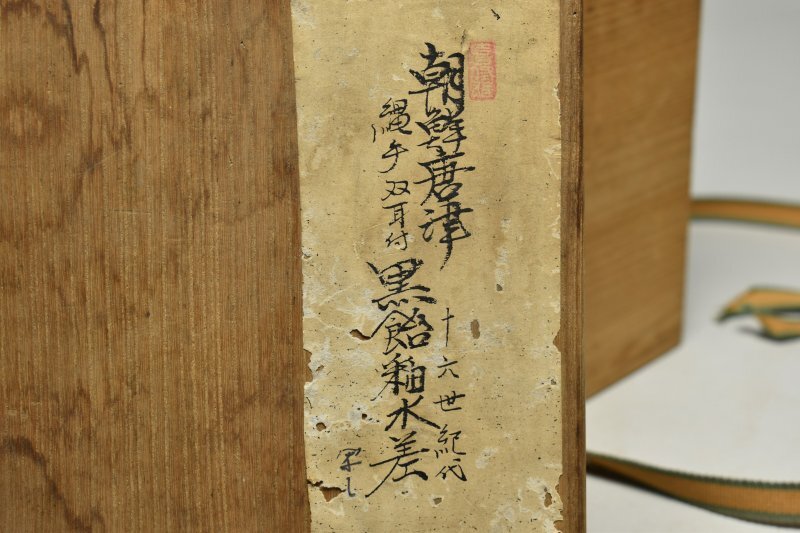 朝鮮唐津
縄手双耳付
十六世紀代
黒飴釉水差